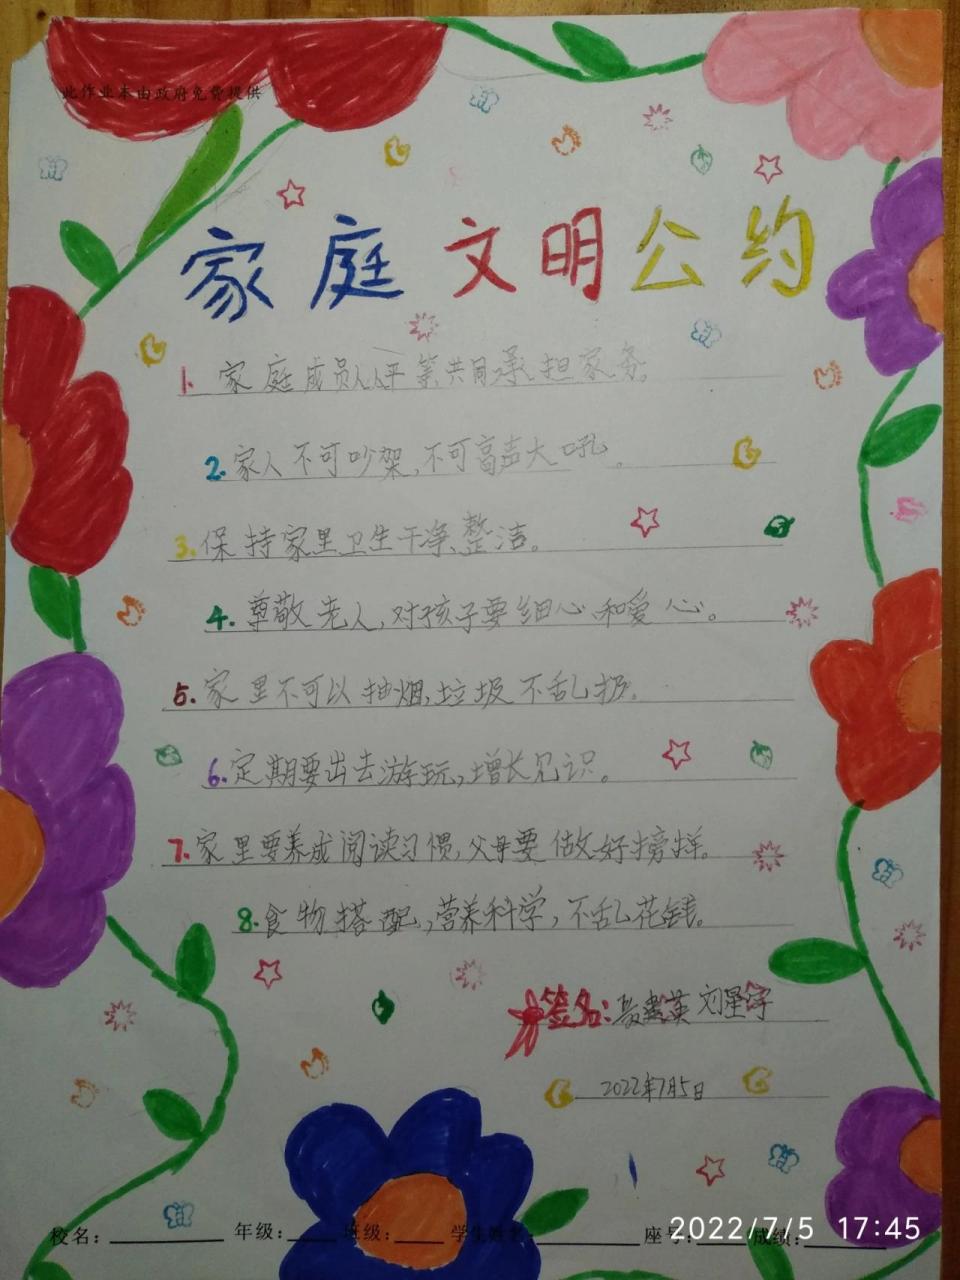 此作业本由政府免费提供
家庭文明公约
1. 家庭成员人人平等共同承担家务。
2. 家人不可吵架,不可高声大吼。
3. 保持家里卫生干净、整洁。
4. 尊敬老人,对孩子要细心和爱心。
5. 家里不可以抽烟,垃圾不乱扔。
6. 定期要出去游玩,增长见识。
7. 家里要养成阅读习惯,父母要做好榜样。
8. 食物搭配,营养科学,不乱花钱。
签名: 刘星宇
2022年7月5日
校名: 年级: 班级: 学生姓名: 座号: 成绩:
2022/7/5 17:45